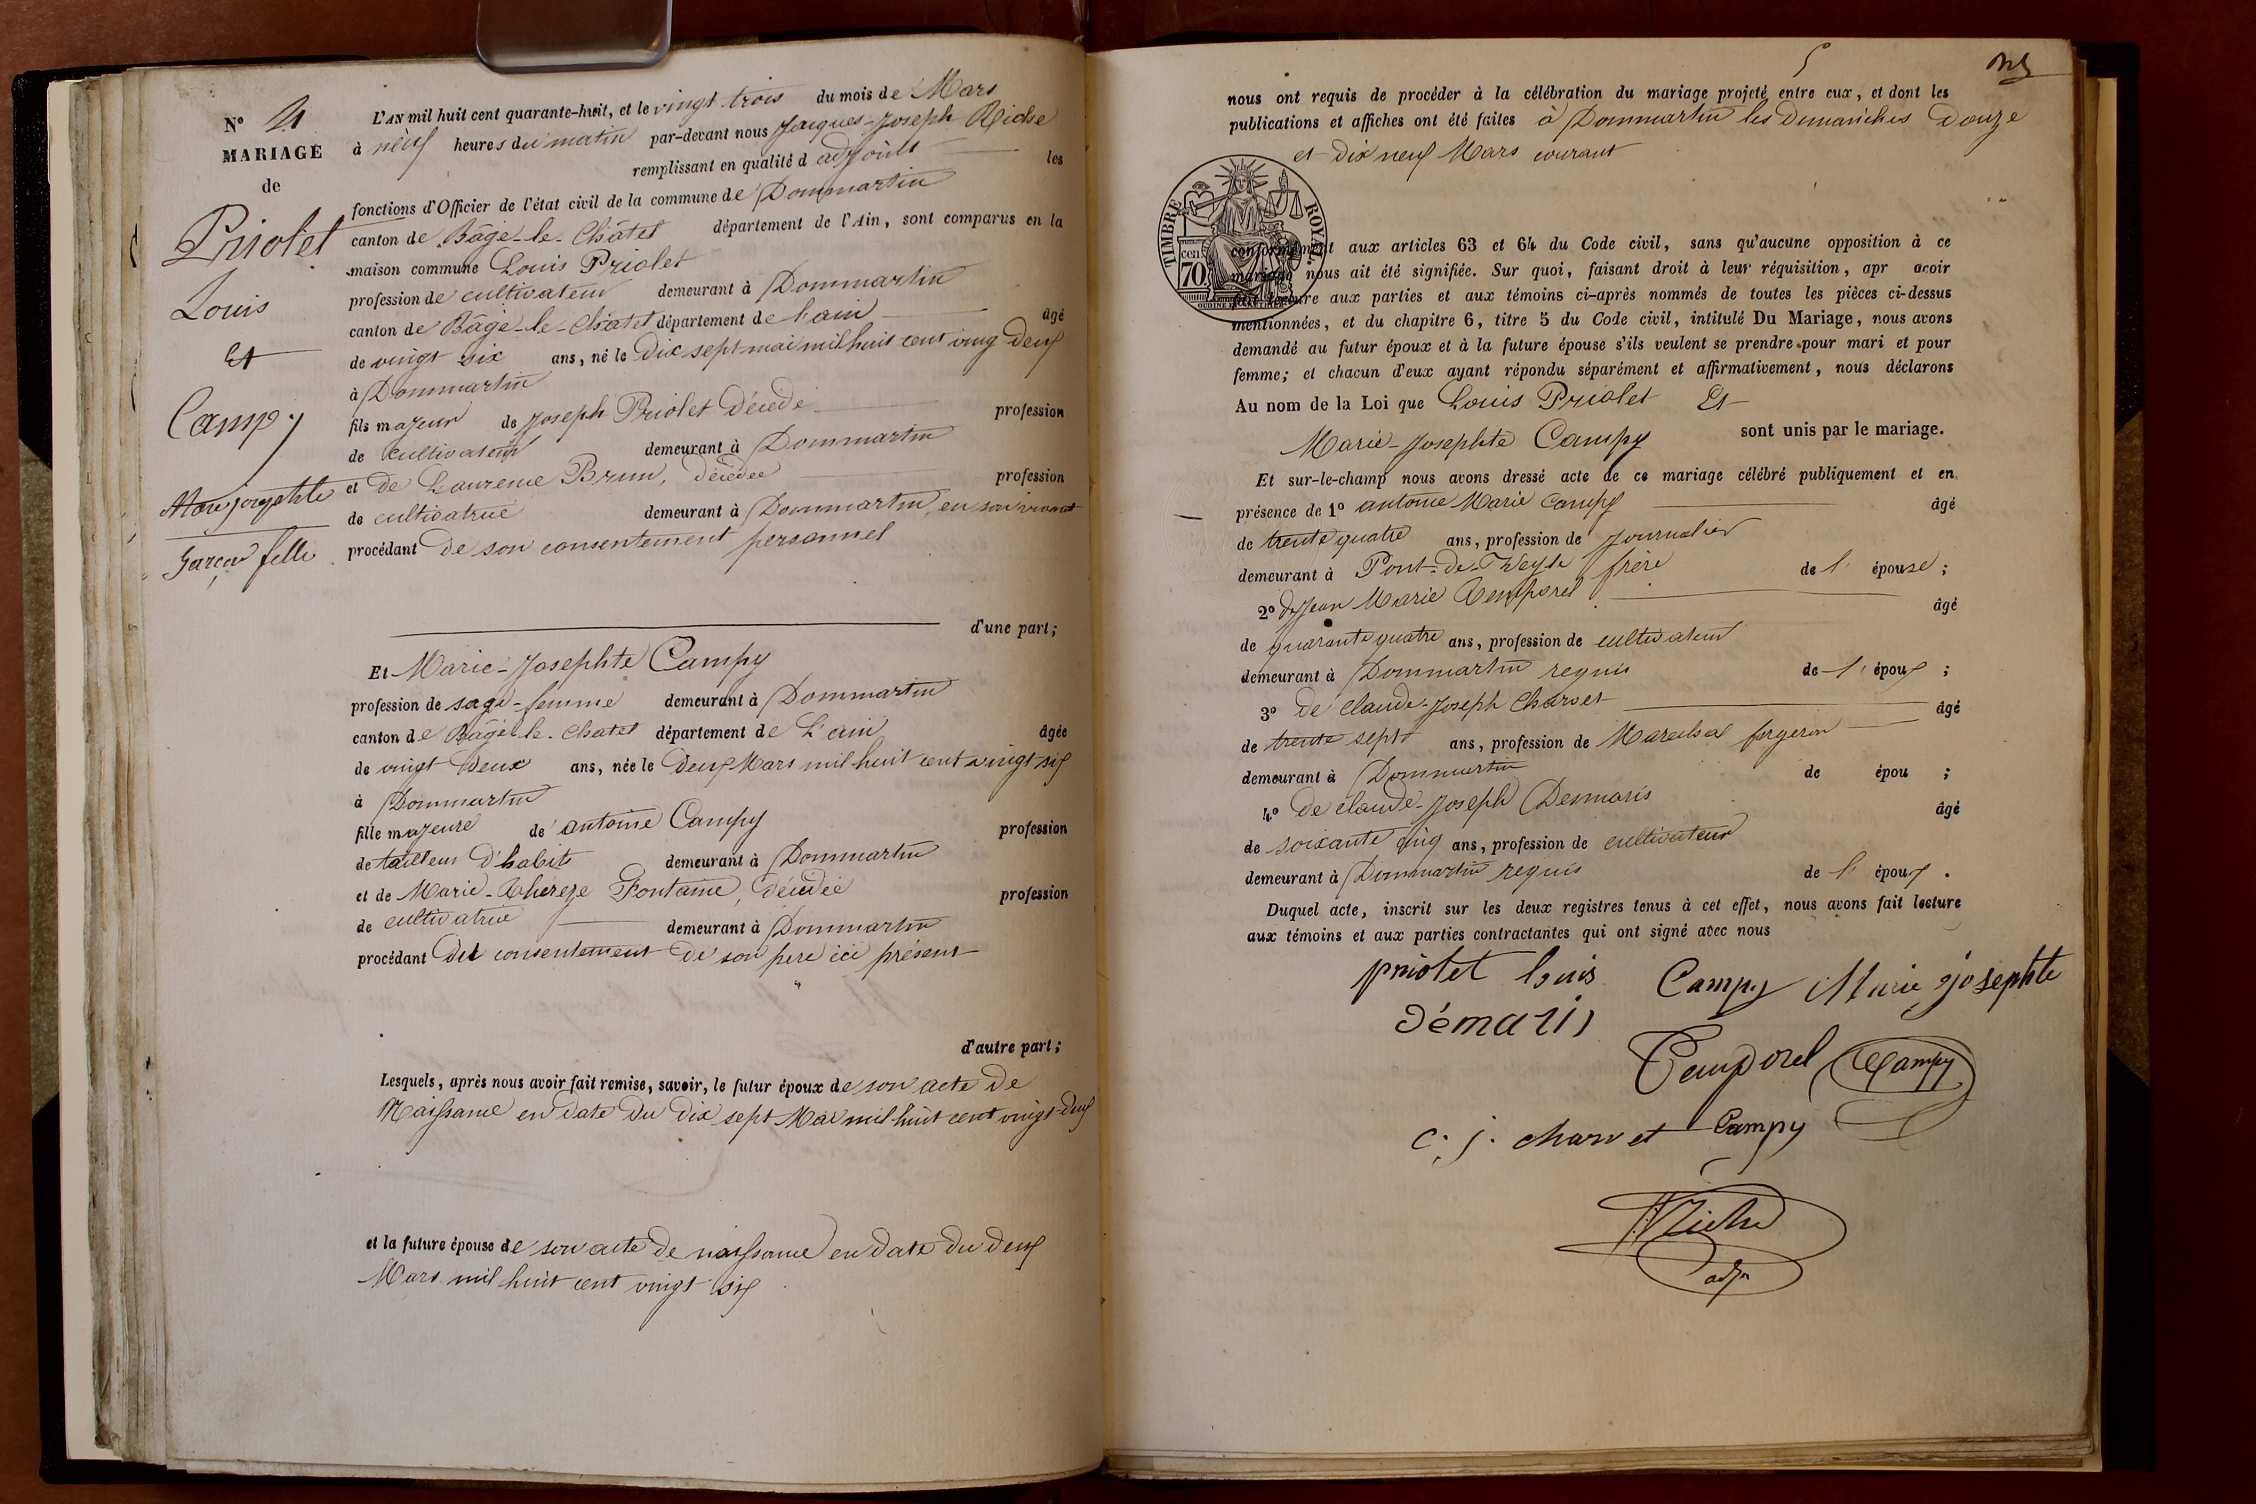 N° 4
MARIAGE
de
Priolet
Louis
Et
Campy
Marie josephte
Garçon fille
L'AN mil huit cent quarante-huit, et le vingt trois du mois de Mars
à neuf heures du matin par-devant nous Jacques-Joseph Riche
remplissant en qualité d'adjoint les
fonctions d'Officier de l'état civil de la commune de Dommartin
canton de Bâgé-le-Châtel département de l'Ain, sont comparus en la
maison commune Louis Priolet
profession de cultivateur demeurant à Dommartin
canton de Bâgé-le-Châtel département de l'ain âgé
de vingt six ans, né le Dix sept mai mil huit cent ving Deux
à Dommartin
fils majeur de Joseph Priolet Décédé profession
de cultivateur demeurant à Dommartin
et de Laurence Brun, décédée profession
de cultivatrice demeurant à Dommartin, en son vivant
procédant de son consentement personnel
d'une part;
Et Marie-Josephte Campy
profession de sage-femme demeurant à Dommartin
canton de Bâgé-le-Chatel département de L'ain âgée
de vingt Deux ans, née le Deux Mars mil huit cent vingt six
à Dommartin
fille majeure de antoine Campy profession
de tailleur d'habits demeurant à Dommartin
et de Marie-Thereze Fontaine, décédée profession
de cultivatrice demeurant à Dommartin
procédant du consentement de son pere ici présent
d'autre part;
Lesquels, après nous avoir fait remise, savoir, le futur époux de son acte de
Naissance en date du dix sept Mai mil huit cent vingt-deux
et la future épouse de son acte de naissance en date du deux
Mars mil huit cent vingt six
5
nous ont requis de procéder à la célébration du mariage projeté entre eux, et dont les
publications et affiches ont été faites à Dommartin les Dimanches Douze
et Dix neuf Mars courant
TIMBRE ROYAL
cen. 70
conformément aux articles 63 et 64 du Code civil, sans qu'aucune opposition à ce
mariage nous ait été signifiée. Sur quoi, faisant droit à leur réquisition, apr avoir
fait lecture aux parties et aux témoins ci-après nommés de toutes les pièces ci-dessus
mentionnées, et du chapitre 6, titre 5 du Code civil, intitulé Du Mariage, nous avons
demandé au futur époux et à la future épouse s'ils veulent se prendre pour mari et pour
femme; et chacun d'eux ayant répondu séparément et affirmativement, nous déclarons
Au nom de la Loi que Louis Priolet Et
Marie-Josephte Campy sont unis par le mariage.
Et sur-le-champ nous avons dressé acte de ce mariage célébré publiquement et en
présence de 1° antoine Marie Campy âgé
de trente quatre ans, profession de Journalier
demeurant à Pont-de-Veyle frère de l'épouse;
2° de Jean Marie Temporel âgé
de quarante quatre ans, profession de cultivateur
demeurant à Dommartin requis de l'époux;
3° de Claude-Joseph Charvet âgé
de trente sept ans, profession de Marechal forgeron
demeurant à Dommartin de épou ;
4° de claude-Joseph Desmaris âgé
de soixante cinq ans, profession de cultivateur
demeurant à Dommartin requis de l'époux.
Duquel acte, inscrit sur les deux registres tenus à cet effet, nous avons fait lecture
aux témoins et aux parties contractantes qui ont signé avec nous
priolet louis Campy Marie josephte
Démaris
Temporel Campy
C. j. charvet Campy
Riche
adjt